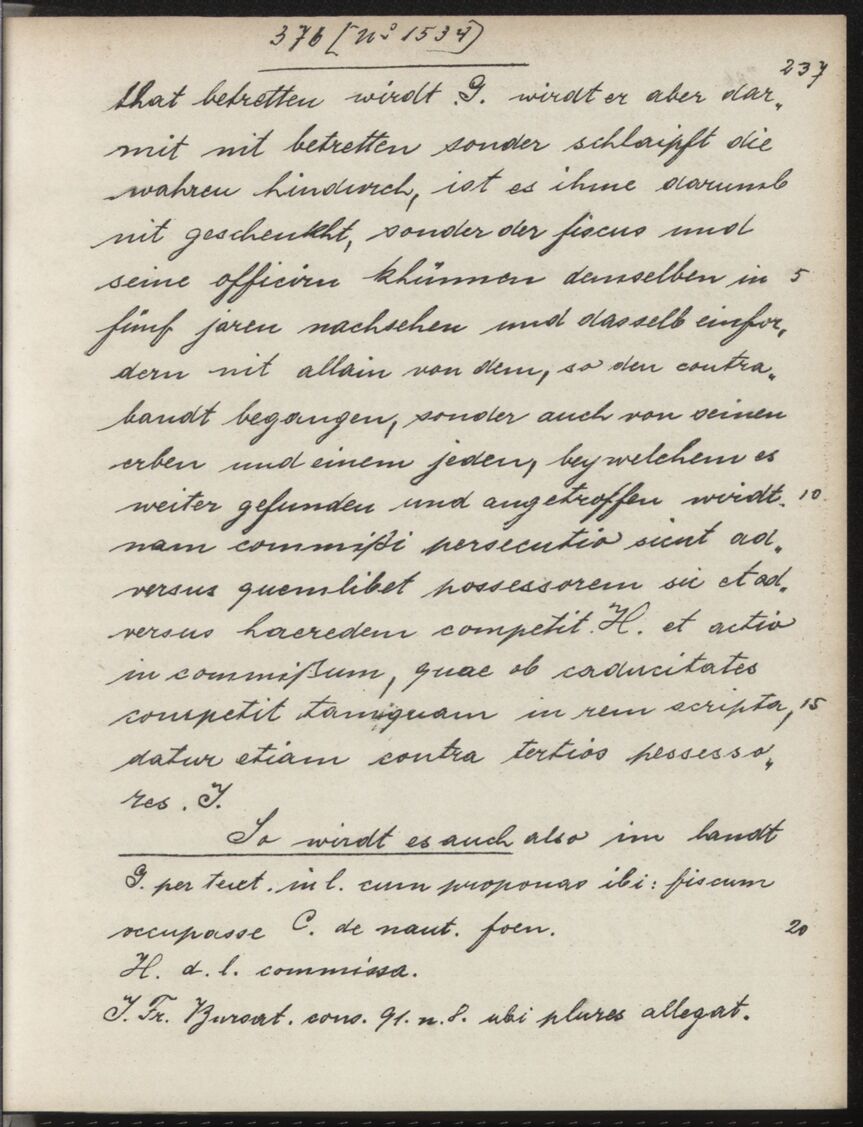 376 [Nº 1534]
237
that betretten wirdt G. wirdt er aber dar„
mit nit betretten sonder schlaipft die
wahren hindurch, ist es ihme darumb
nit geschenkht, sonder der fiscus und
seine officirn khünnen denselben in 5
fünf jaren nachsehen und dasselb einfor„
dern nit allain von dem, so den contra„
bandt begangen, sonder auch von seinen
erben und einem jeden, bey welchem es
weiter gefunden und angetroffen wirdt. 10
nam commißi persecutio sicut ad„
versus quemlibet possessorem sic et ad„
versus haeredem competit. H. et actio
in commißum, quae ob caducitates
competit tamquam in rem scripta, 15
datur etiam contra tertios possesso„
res. J.
So wirdt es auch also im landt
G. per text. in l. cum proponas ibi: fiscum
occupasse C. de naut. foen. 20
H. d. l. commissa.
J. Fr. Bursat. cons. 91. n. 8. ubi plures allegat.